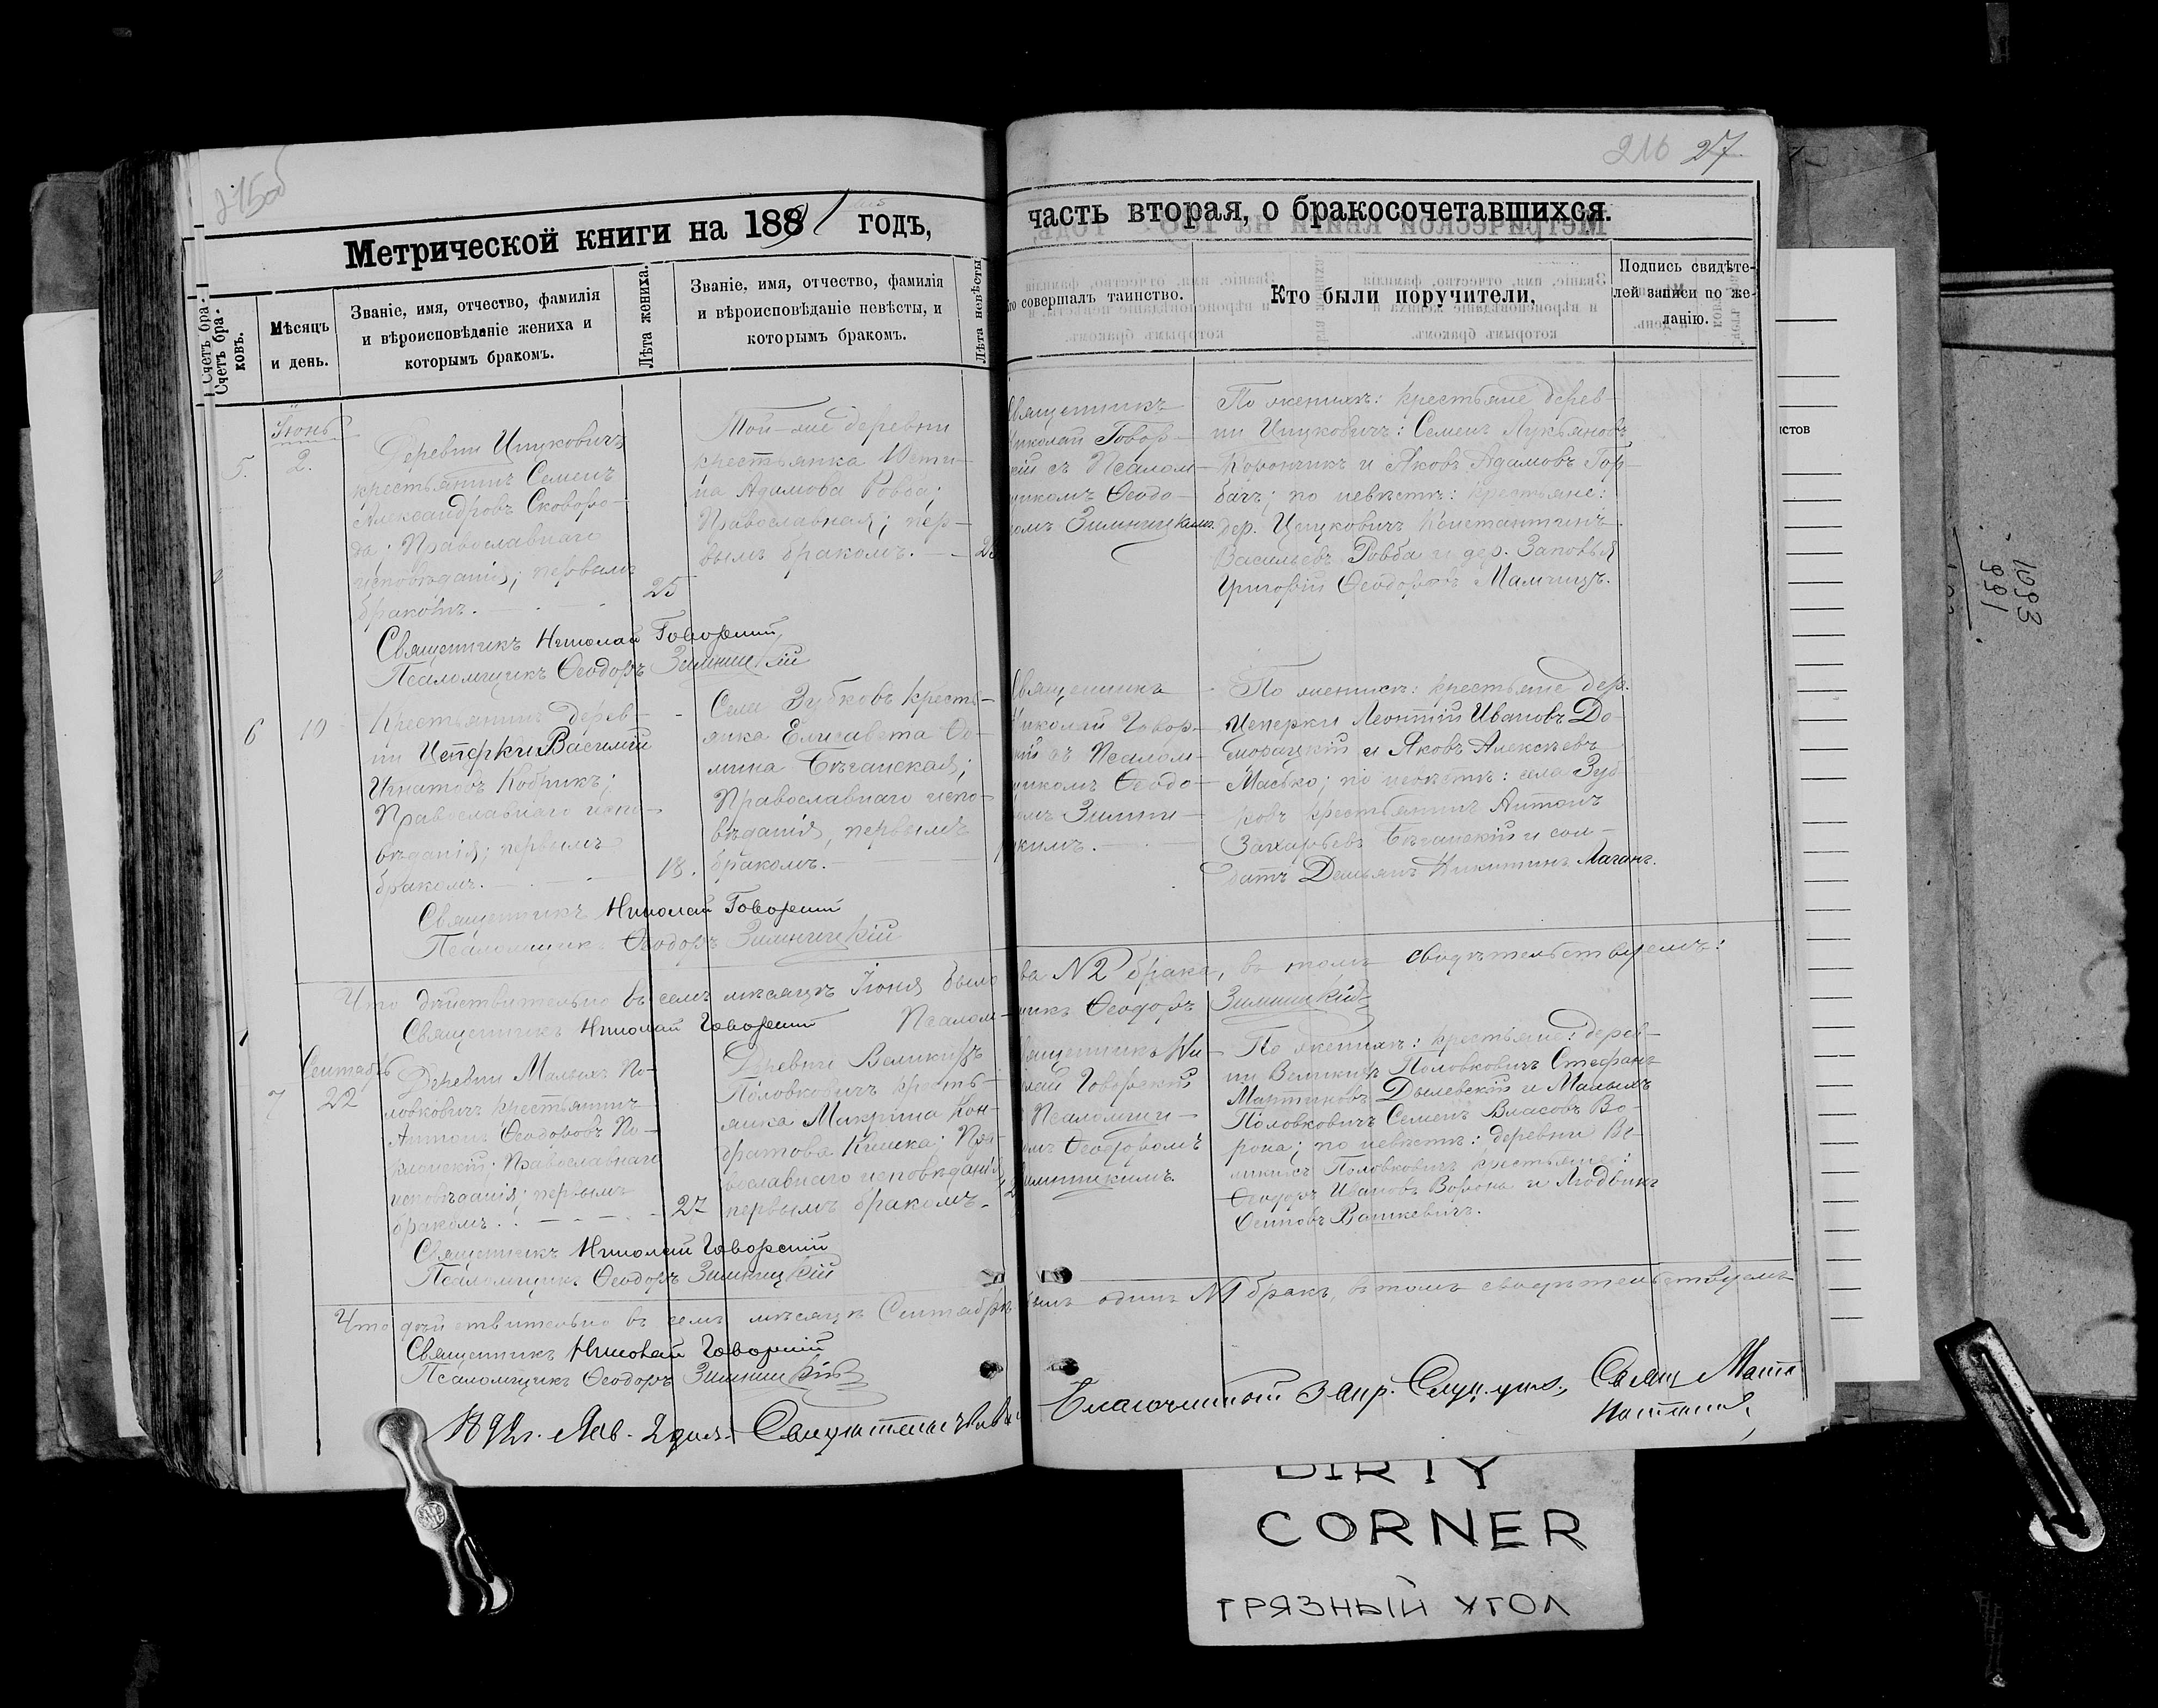 215об
216 27.
Метрической книги на 1891 годъ,
часть вторая, о бракосочетавшихся.
Счетъ бра-
ковъ.
Мѣсяцъ
и день.
Званіе, имя, отчество, фамилія
и вѣроисповѣданіе жениха и
которымъ бракомъ.
Лѣта жениха.
Званіе, имя, отчество, фамилія
и вѣроисповѣданіе невѣсты, и
которымъ бракомъ.
Лѣта невѣсты
совершалъ таинство.
Кто были поручители,
Подпись свидѣте-
лей записи по же-
ланію.
Іюнь
5. 2.
Деревни Цицковичъ
крестьянинъ Семенъ
Александровъ Сковоро-
да; Православнаго
исповѣданія; первымъ
бракомъ.
25
Той-же деревни
крестьянка Усти-
на Адамова Ровба;
Православная; пер-
вымъ бракомъ.
Священникъ
Николай Говор-
скій съ Псалом-
щикомъ Ѳеодо-
ромъ Зимницкимъ.
По женихѣ: крестьяне дерев-
ни Цицковичъ: Семенъ Лукьяновъ
Корончикъ и Яковъ Адамовъ Гор-
бачъ; по невѣстѣ: крестьяне:
дер. Цицковичъ Константинъ
Васильевъ Ровба и дер. Заполья
Григорій Ѳеодоровъ Мамчицъ.
Священникъ Николай Говорскій
Псаломщикъ Ѳеодоръ Зимницкій
6 10
Крестьянинъ дерев-
ни Цеперки Василій
Игнатовъ Кобрикъ;
Православнаго испо-
вѣданія; первымъ
бракомъ.
18.
Села Зубковъ кресть-
янка Елисавета Ѳо-
мина Бѣганская;
Православнаго испо-
вѣданія, первымъ
бракомъ.
Священникъ
Николай Говор-
скій съ Псалом-
щикомъ Ѳеодо-
ромъ Зимни-
цкимъ.
По женихѣ: крестьяне дер.
Цеперки Леонтій Ивановъ До-
морацкій и Яковъ Алексѣевъ
Масько; по невѣстѣ: села Зуб-
ковъ крестьянинъ Антонъ
Захарьевъ Бѣганскій и сол-
датъ Демьянъ Никитинъ Лаганъ.
Священникъ Николай Говорскій
Псаломщикъ Ѳеодоръ Зимницкій
Что дѣйствительно въ семъ мѣсяцѣ Іюня было два №2 брака, въ томъ свидѣтельствуемъ:
Священникъ Николай Говорскій Псаломщикъ Ѳеодоръ Зимницкій
Сентябрь
7 22
Деревни Малыхъ По-
ловковичъ крестьянинъ
Антонъ Ѳеодоровъ По-
клонскій; Православнаго
исповѣданія; первымъ
бракомъ.
27
Деревни Великихъ
Половковичъ кресть-
янка Макрина Кон-
дратова Кишка; Пра-
вославнаго исповѣданія,
первымъ бракомъ.
Священникъ Ни-
колай Говорскій
Псаломщи-
комъ Ѳеодоромъ
Зимницкимъ.
По женихѣ: крестьяне: дерев-
ни Великихъ Половковичъ Стефанъ
Мартиновъ Дылевскій и Малыхъ
Половковичъ Семенъ Власовъ Во-
рона; по невѣстѣ: деревни Ве-
ликихъ Половковичъ крестьяне:
Ѳеодоръ Ивановъ Ворона и Людвикъ
Осиповъ Вашкевичъ.
Священникъ Николай Говорскій
Псаломщикъ Ѳеодоръ Зимницкій
Что дѣйствительно въ семъ мѣсяцѣ Сентябрѣ былъ одинъ №1 бракъ, въ томъ свидѣтельствуемъ
Священникъ Николай Говорскій
Псаломщикъ Ѳеодоръ Зимницкій
1892г. Янв. 2 дня.
Благочинный 3 окр. Слуц. уѣз., Свящ
истов
1093
991
DIRTY
CORNER
ГРЯЗНЫЙ УГОЛ